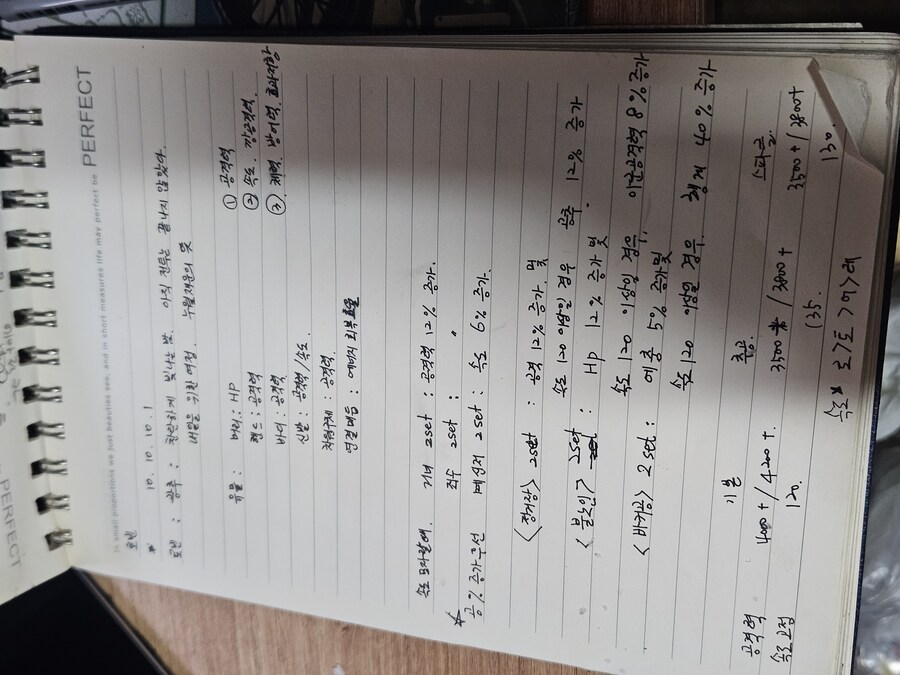 PERFECT
In small proportions we just beauties see, and in short measures life may perfect be PERFECT
로빈
* 10. 10. 10. 1
로빈 : 광추 : 찬란하게 빛나는 밤. 아직 전투는 끝나지 않았다.
내일을 위한 여정. 누월재운의 뜻
유물 : 머리 : HP ① 공격력
핸드 : 공격력 ② 속도. 깡공격력.
바디 : 공격력 ③ 체력. 방어력. 효과저항
신발 : 공격력/속도.
차원구체 : 공격력.
연결매듭 : 에너지 회복효율
속도 모자랄때. 거너 2set : 공격력 12% 증가.
죄수 2set : "
공% 증가 우선 메신저 2set : 속도 6% 증가.
<정거장> 2set : 공격 12% 증가. 및
속도 120 이상일 경우 공추 12% 증가
<불노인> 2set : Hp 12% 증가 및
속도 120 이상일 경우, 아군공격력 8% 증가
<바커공> 2set : 에충 5% 증가및
속도 120 이상일 경우. 행게 40% 증가
기본 추공. 스파클.
공격력 4000+/4200+. 3500+/3800+ 3500+/3800+
속도고점 120. 135. 130.
속도* 로>토>어>레